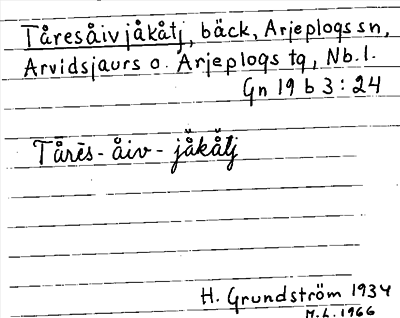 Tåresåivjåkåtj, bäck, Arjeplogs sn,
Arvidsjaurs o. Arjeplogs tg, Nb.l.
Gn 19 b 3:24
Tårēs-åiv-jåkåtj
H. Grundström 1934
M.L. 1966